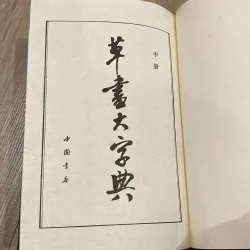 中册
草書大字典
中国书店